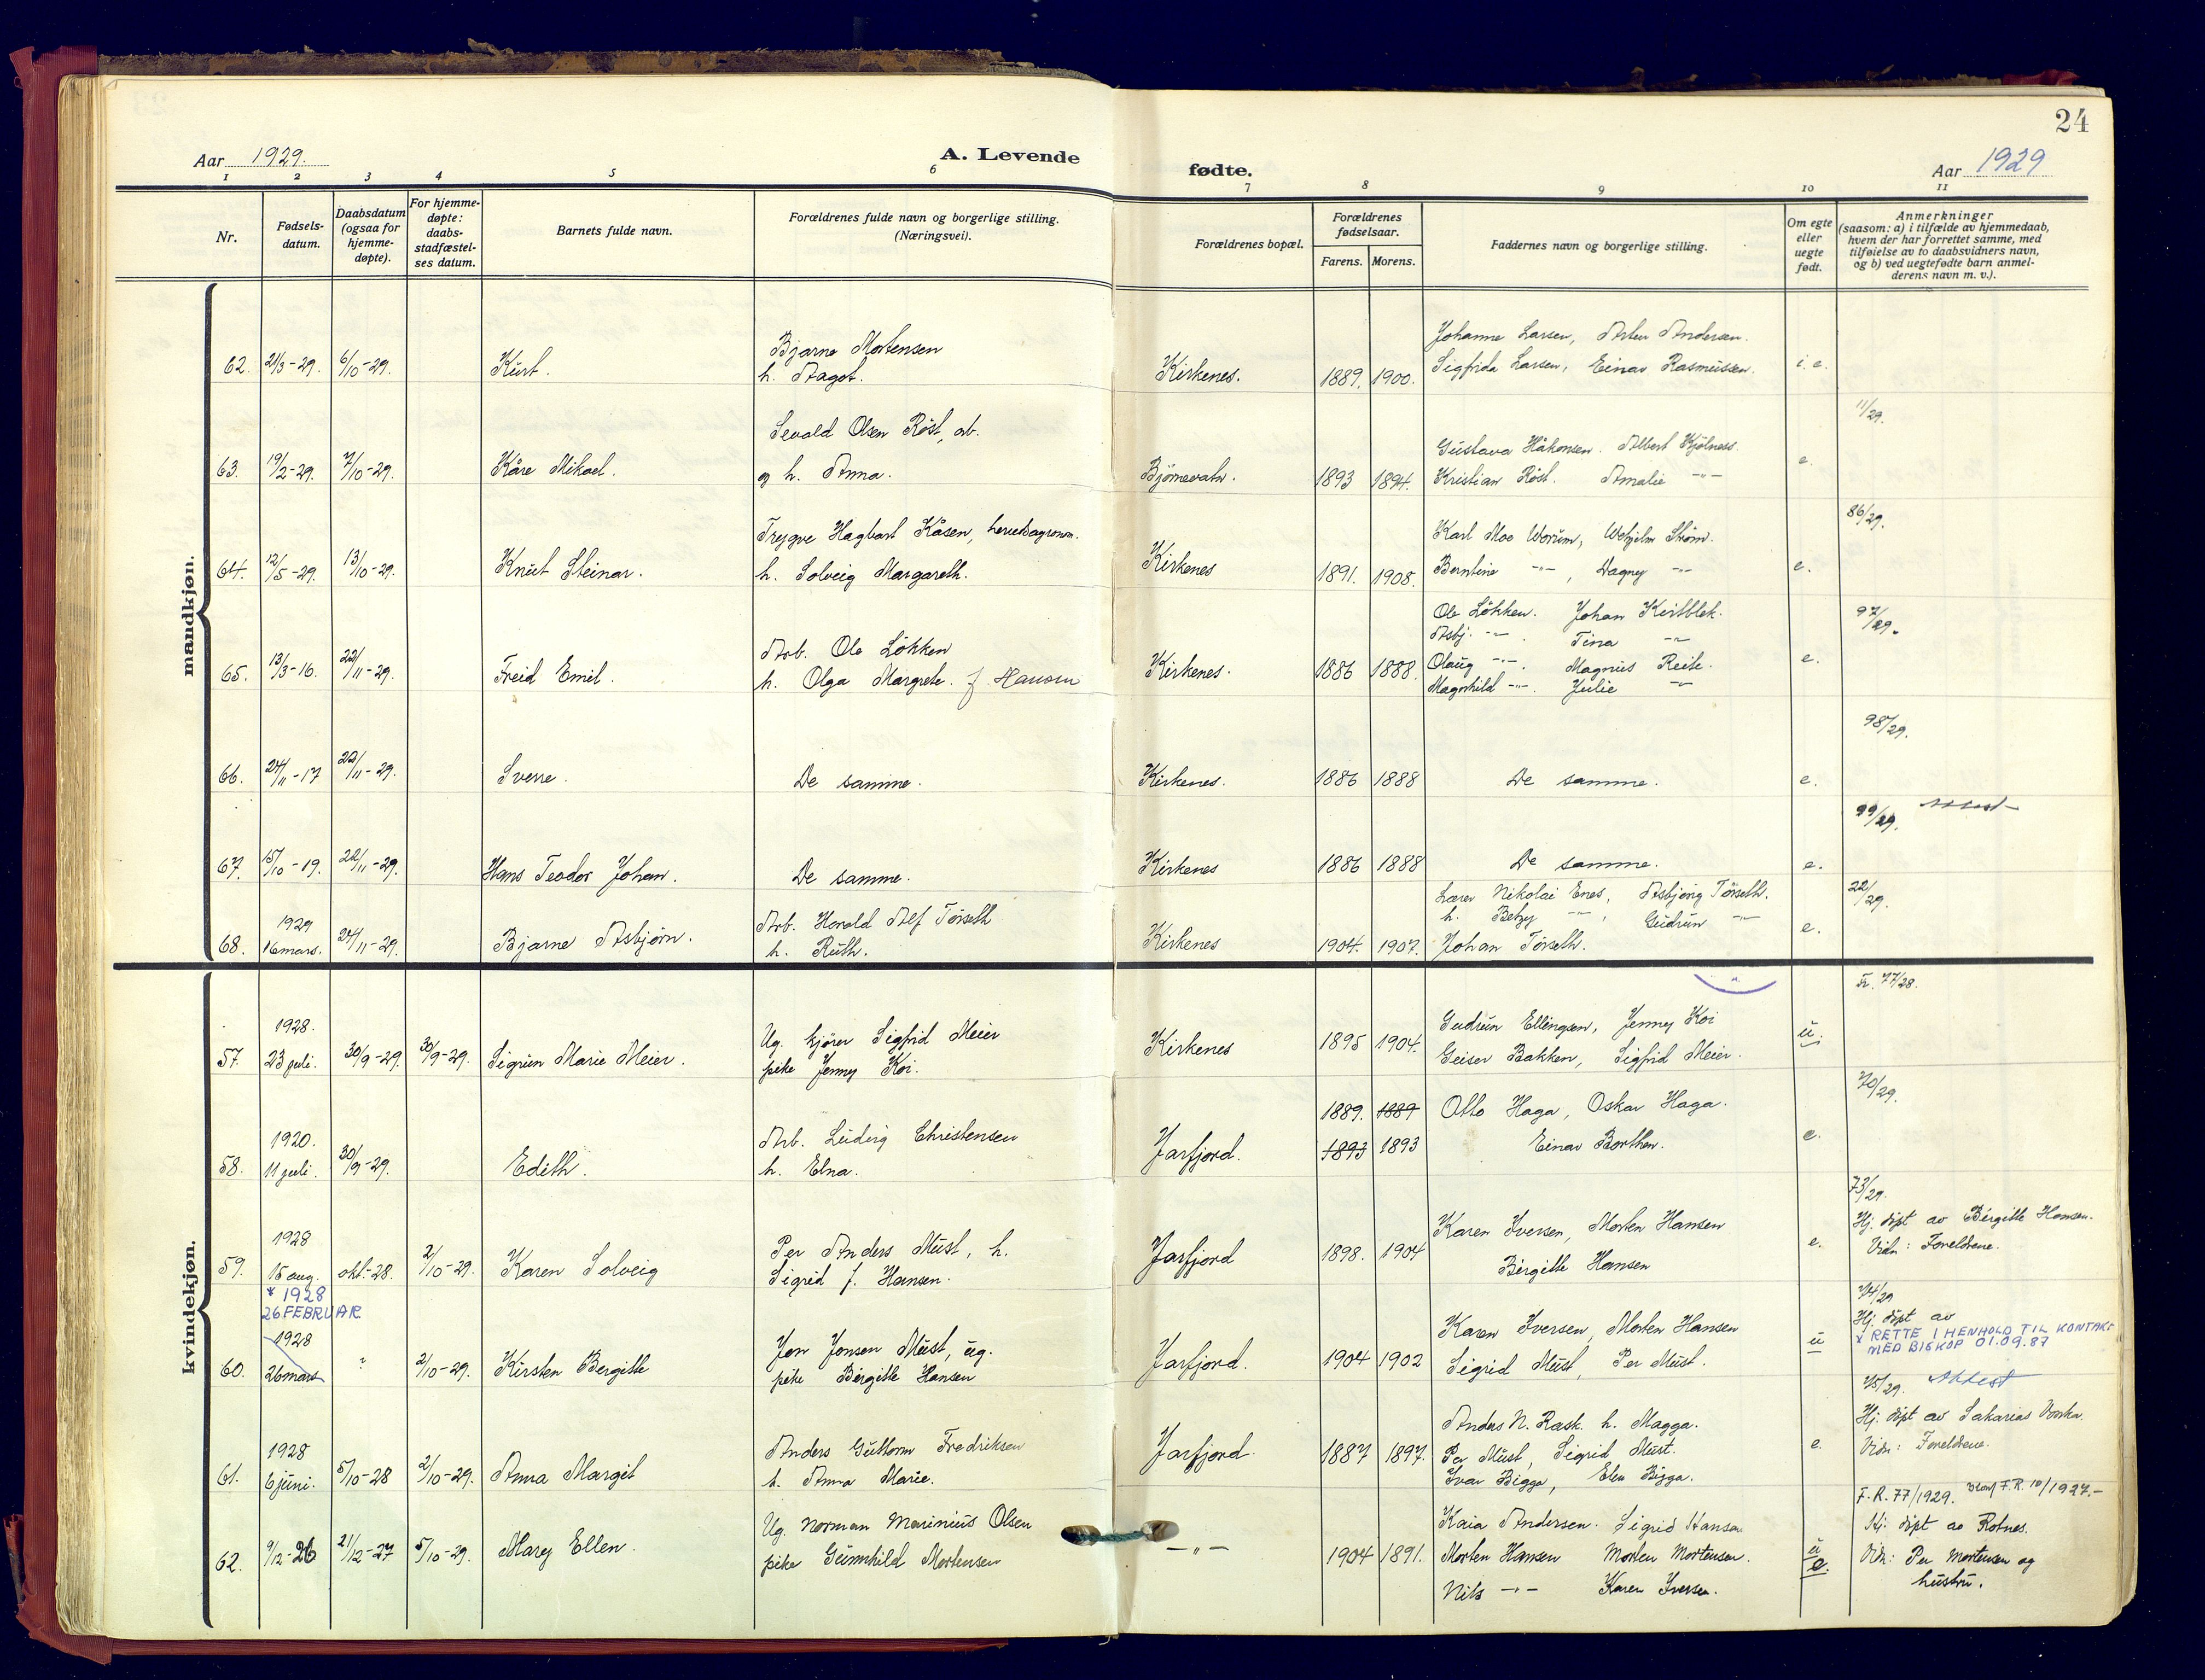 24
Aar 1929.
A. Levende
fødte.
Aar 1929
1 2 3 4 5 6 7 8 9 10 11
Nr.
Fødsels-
datum.
Daabsdatum
(ogsaa for
hjemme-
døpte).
For hjemme-
døpte:
daabs-
stadfæstel-
ses datum.
Barnets fulde navn.
Forældrenes fulde navn og borgerlige stilling.
(Næringsvei).
Forældrenes bopæl.
Forældrenes
fødselsaar.
Farens. Morens.
Faddernes navn og borgerlige stilling.
Om egte
eller
uegte
født.
Anmerkninger
(saasom: a) i tilfælde av hjemmedaab,
hvem der har forrettet samme, med
tilføielse av to daabsvidners navn,
og b) ved uegtefødte barn anmel-
derens navn m. v.).
mandkjøn.
Bjarne Mortensen Johanne Larsen, Andersen.
62. 21/3-29. 6/10-29. Kurt. h. Aagot. Kirkenes. 1889. 1900. Sigfrida Larsen, Einar Rasmussen. i. e.
11/29.
Sevald Olsen Røst, arb. Gustava Håkonsen. Albert Kjølness.
63. 19/2-29. 7/10-29. Kåre Mikael. og h. Anna. Bjørnevatn. 1893 1894. Kristian Røst. Amalie -"- e.
86/29.
Trygve Hagbart Kåsen, herredsagronom. Karl Moe Worum, Strøm.
64. 12/5-29. 13/10-29. Knut Steinar. h. Solveig Margareth. Kirkenes 1891. 1908. Berntine -"-, Dagny -"- e.
97/29.
Ole Løkken. Johan
Arb. Ole Løkken Asbj. -"-. Tina -"-
65. 13/3-16. 22/11-29. Freid Emil. h. Olga Margrete. f Hansen Kirkenes. 1886 1888. Olaug -"-. Magnus Reite. e.
Magnhild -"-. Julie -"-
98/29.
66. 24/11-17 22/11-29. Sverre. De samme. Kirkenes. 1886 1888 De samme. e.
99/29. Attest
67. 15/10-19. 22/11-29. Hans Teodor Johan. De samme. Kirkenes 1886 1888 De samme. e.
22/29.
1929 Arb. Harald Alf Tørseth Lærer Nikolai Enes, Asbjørg Tørseth.
h. Betzy -"-, Gudrun -"-
68. 16 mars. 24/11-29. Bjarne Asbjørn. h. Ruth. Kirkenes 1904. 1907. Johan Tørseth. e.
kvindekjøn.
Fr. 77/28.
1928. Ug. kjører Sigfrid Meier Gudrun Ellingsen, Jenny Koi
57. 23 juli. 30/9-29. 30/9-29. Sigrun Marie Meier. pike Jenny Koi. Kirkenes 1895 1904. Geiser Bakken, Sigfrid Meier. u.
70/29.
1889. 1889 Otto Haga, Oskar Haga.
1920. Arb. Ludvig Christensen
58. 11 juli. 30/9-29. Edith. h. Elna. Jarfjord. 1893 1893 Einar Borthen. e.
73/29.
1928 Per Anders Must, h. Karen Iversen, Morten Hansen Hj. døpt av Birgitte Hansen.
59. 15 aug. okt-28. 2/10-29. Karen Solveig Sigrid f. Hansen. Jarfjord 1898. 1904 Birgitte Hansen e. Vidn: Foreldrene.
* 1928
26 FEBRUAR
74/29
Hj. døpt av
1928 Jon Jonsen Must, ug. Karen Iversen, Morten Hansen * RETTE I HENHOLD TIL KONTAKT
MED BISKOP 01.09.87
60. 26 mars ? 2/10-29. Kirsten Bergitte pike Birgitte Hansen Jarfjord. 1904 1902 Sigrid Must, Per Must. u
75/29. Attest
1928 Anders Guttorm Fredriksen Anders N. Rask. h. Magga. Hj. døpt av Sakarias
61. 6 juni. 5/10-28 2/10-29. Anna Margit h. Anna Marie. Jarfjord. 1887 1897. Per Must, Sigrid Must. e. Vidn: Foreldrene.
Ivar Bigga, Elen Bigga.
F. R. 77/1929. F.R. 10/1927.-
Ug. Norman Marinius Olsen Kaia Andersen. Sigrid Hansen Hj. døpt av Rotnes.
62. 9/12-26 21/12-27 5/10-29. Mary Ellen. pike Gunnhild Mortensen -"- 1904 1891. Morten Hansen Morten Mortensen. u e. Vidn: Per Mortensen og
Nils -"- Karen Iversen. hustru.